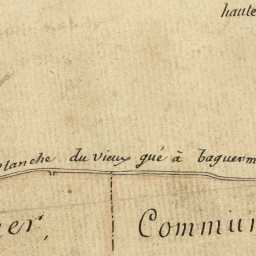 haute
planche du vieux gué à baguerm
er,
Commun